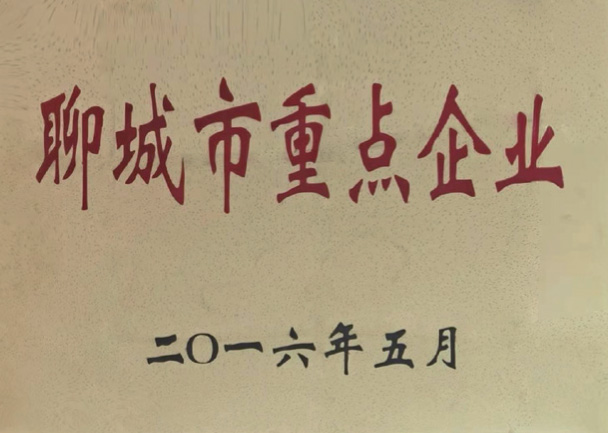 聊城市重点企业
二〇一六年五月